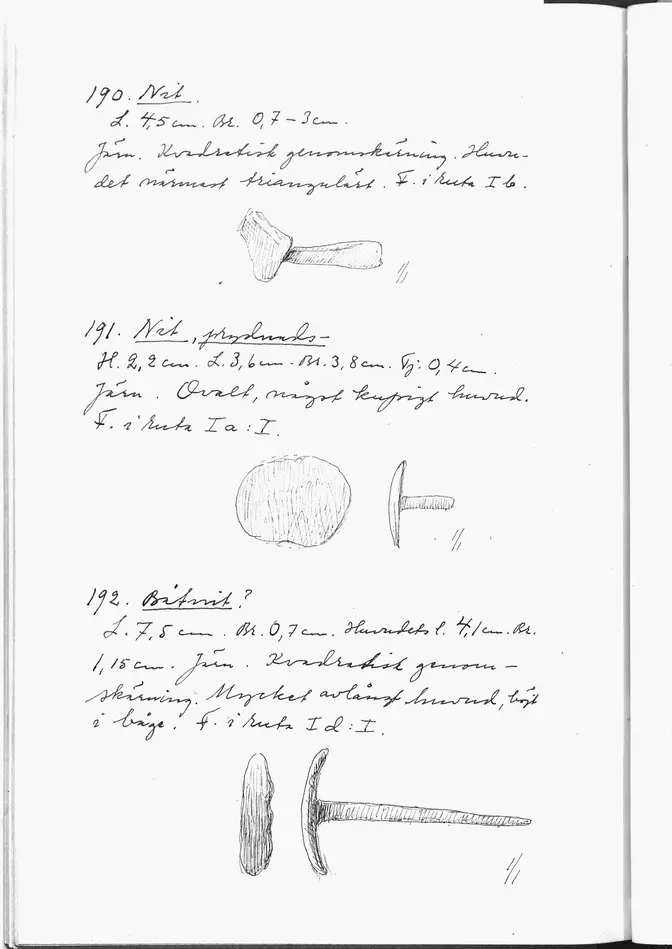 190. Nit.
L. 4,5 cm. Br. 0,7 – 3 cm.
Järn. Kvadratisk genomskärning. Huvu-
det närmast triangulärt. F. i ruta I b.
1/1
191. Nit, prydnads-
H. 2,2 cm. L. 3,6 cm. Br. 3,8 cm. Tj. 0,4 cm.
Järn. Ovalt, något kupigt huvud.
F. i ruta I a : I.
1/1
192. Båtnit?
L. 7,5 cm. Br. 0,7 cm. Huvudets l. 4,1 cm. Br.
1,15 cm. Järn. Kvadratisk genom-
skärning. Mycket avlångt huvud, böjt
i båge. F. i ruta I d : I.
1/1